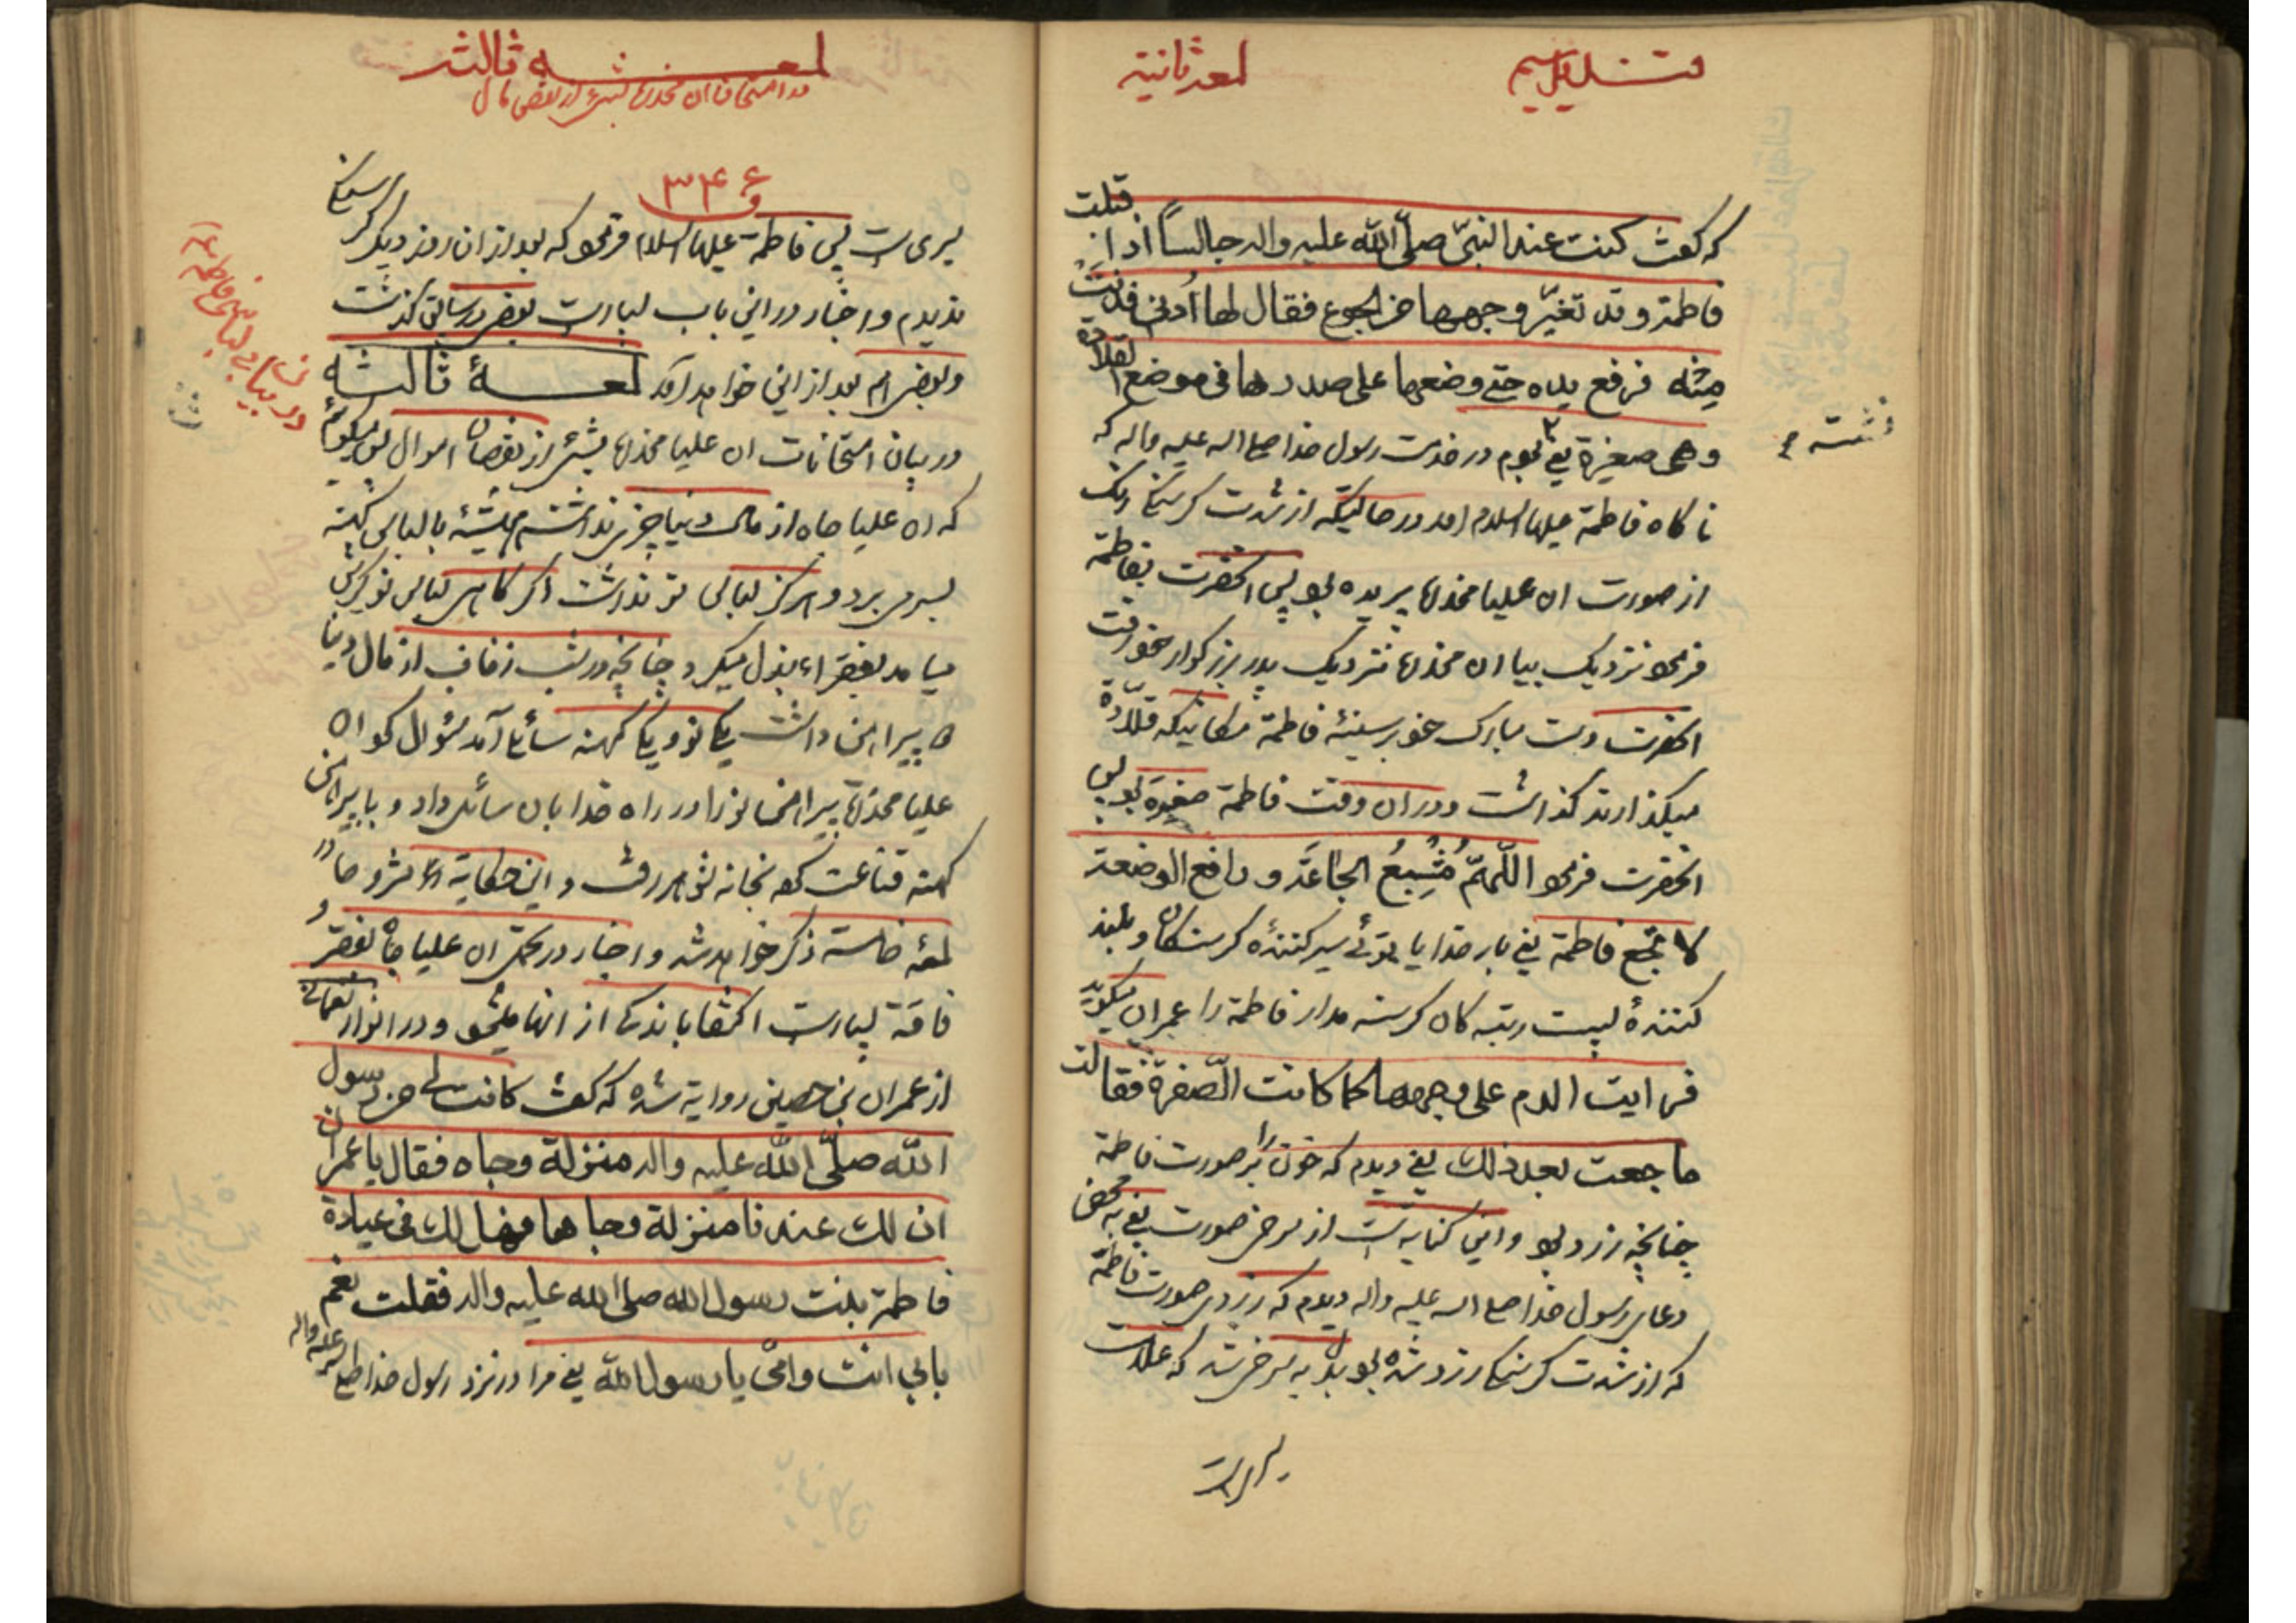 لمعه ثانیة
که گفت کنت عند النبیّ صلّی اللّه علیه واله جالساً اذ اقبلت
فاطمة و قد تغیّر وجهها من الجوع فقال لها اُدنی فدنت
منه فرفع یده حتی وضعها علی صدرها فی موضع القلادة
وهی صغیرة یعنی بودم در خدمت رسول خدا صلی الله علیه واله که
نشسته
ناکاه فاطمة علیها السلام امد در حالتیکه از شدت کرسنکی رنک
از صورت ان علیا مخدره پریده بود پس انحضرت بفاطمة
فرمود نزدیک بیا ان مخدره نزدیک پدر بزرکوار خود رفت
انحضرت دست مبارک خود بر سینۀ فاطمة مکانیکه قلّادة
میکذارند کذاشت و در ان وقت فاطمة صغیرة بود پس
انحضرت فرمود اللّهمّ مُشبِعُ الجاعَة و رافع الوضعة
لا تجع فاطمة یعنی بار خدایا توئی سیر کنندۀ کرسنکان و بلند
کنندۀ پست رتبه کان کرسنه مدار فاطمة را عمران میکوید
فرایت الدم علی وجهها کما کانت الصّفرة فقالت
ما جعت بعد ذلک یعنی دیدم که خون را بر صورت فاطمة
چنانچه زرد بود و این کنایه است از سرخی صورت یعنی به محض
دعای رسول خدا صلی الله علیه واله دیدم که زردی صورت فاطمة
که از شدت کرسنکی زرد شده بود بدل به سرخی شد که علامت
سیری است
لمعه ثالثه
در امتحانات ان مخدره بشئ از نقص مال
۳۴۶
سیری است پس فاطمة علیها السلام فرمود که بعد از ان روز دیکر کرسنکی
ندیدم و اخبار در این باب بسیار است بعضی در سابق کذشت
و بعضی هم بعد از این خواهد آمد لمعۀ ثالثه
در بیان امتحانات ان علیا مخدره بشئ از نقصان اموال پس میکوئیم
در بیان بی لباسی فاطمه
که ان علیا جاه از مال دنیا چیزی نداشت همیشه با لباس کهنه
بسر می برد و هرکز لباس نو نداشت اکر کاهی لباس نو کیرش
میامد بفقراء بذل میکرد چنانچه در شب زفاف از مال دنیا
پیراهن داشت یکی نو و یکی کهنه سائلی آمد سؤال کرد ان
علیا مخدره پیراهن نو را در راه خدا بان سائل داد و با پیراهن
کهنه قناعت کرده بخانه شوهر رفت و این حکایة مشروحا
لمعه خامسة ذکر خواهد شد و اخبار در تحمل ان علیا جاه بفقر و
فاقة بسیار است اکتفا باندکی از انها میشود و در انوار نعمانی
از عمران بن حصین روایة شده که گفت کانت لی من رسول
اللّه صلّی اللّه علیه واله منزلة وجاه فقال یا عمران
ان لک عندنا منزلة وجاها فهل لک فی عیادة
فاطمة بنت رسول الله صلی الله علیه واله فقلت نعم
بابی انت وامّی یا رسول اللّه یعنی مرا در نزد رسول خدا صلی الله علیه واله